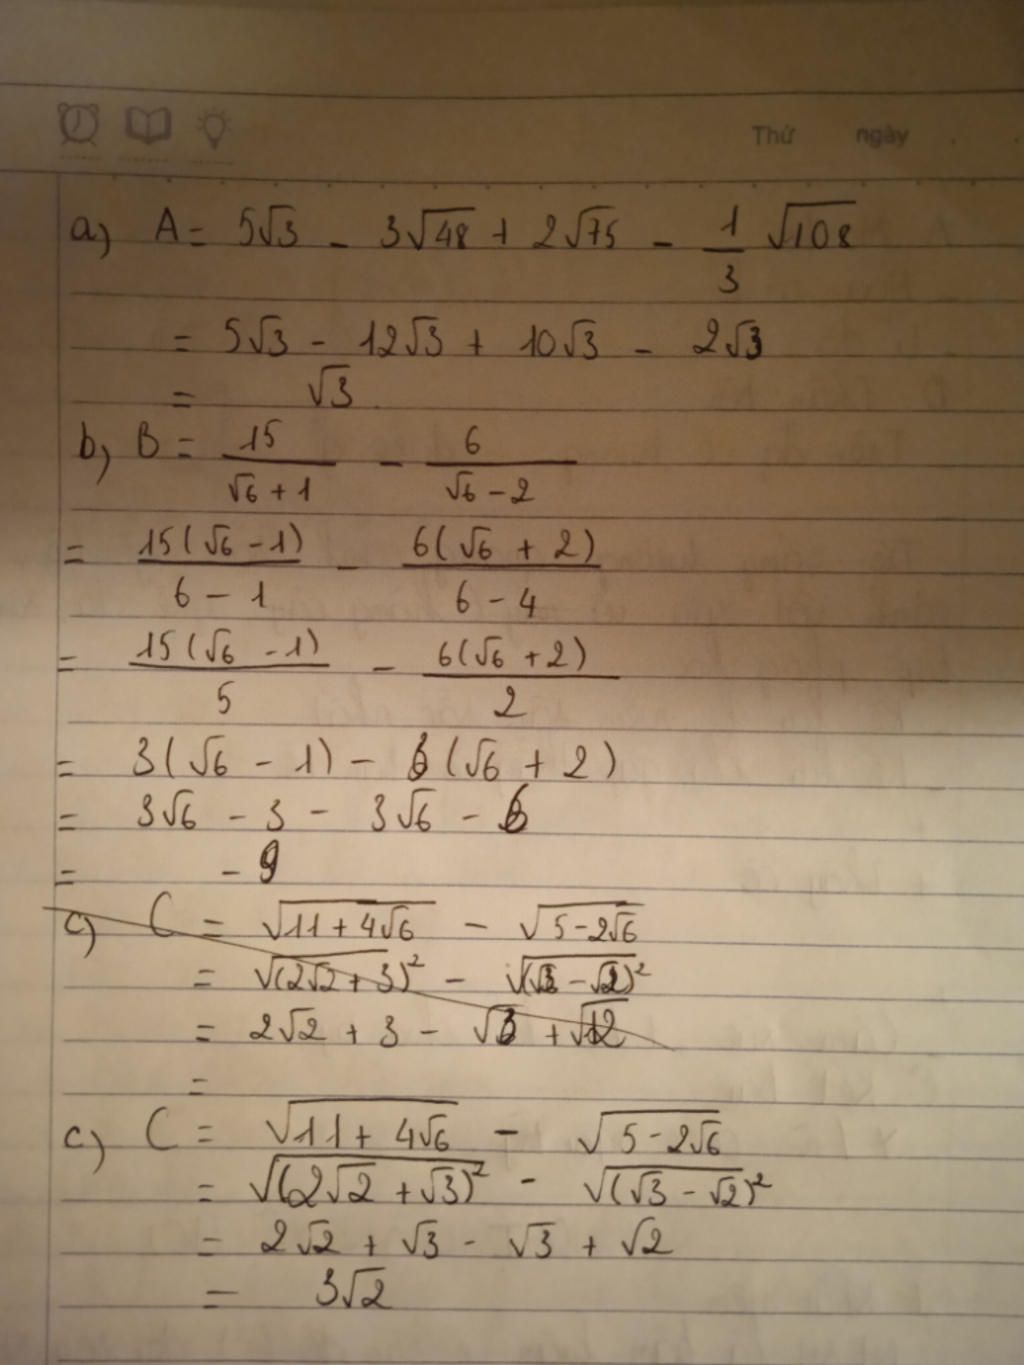 Thứ ngày
a) A = 5√3 - 3√48 + 2√75 - 1/3 √108
= 5√3 - 12√3 + 10√3 - 2√3
= √3
b) B = 15/(√6 + 1) - 6/(√6 - 2)
= 15(√6 - 1)/(6 - 1) - 6(√6 + 2)/(6 - 4)
= 15(√6 - 1)/5 - 6(√6 + 2)/2
= 3(√6 - 1) - 3(√6 + 2)
= 3√6 - 3 - 3√6 - 6
= - 9
c) C = √(11 + 4√6) - √(5 - 2√6)
= √(2√2 + 3)² - √(√3 - √2)²
= 2√2 + 3 - √3 + √2
=
c) C = √(11 + 4√6) - √(5 - 2√6)
= √(2√2 + √3)² - √(√3 - √2)²
= 2√2 + √3 - √3 + √2
= 3√2